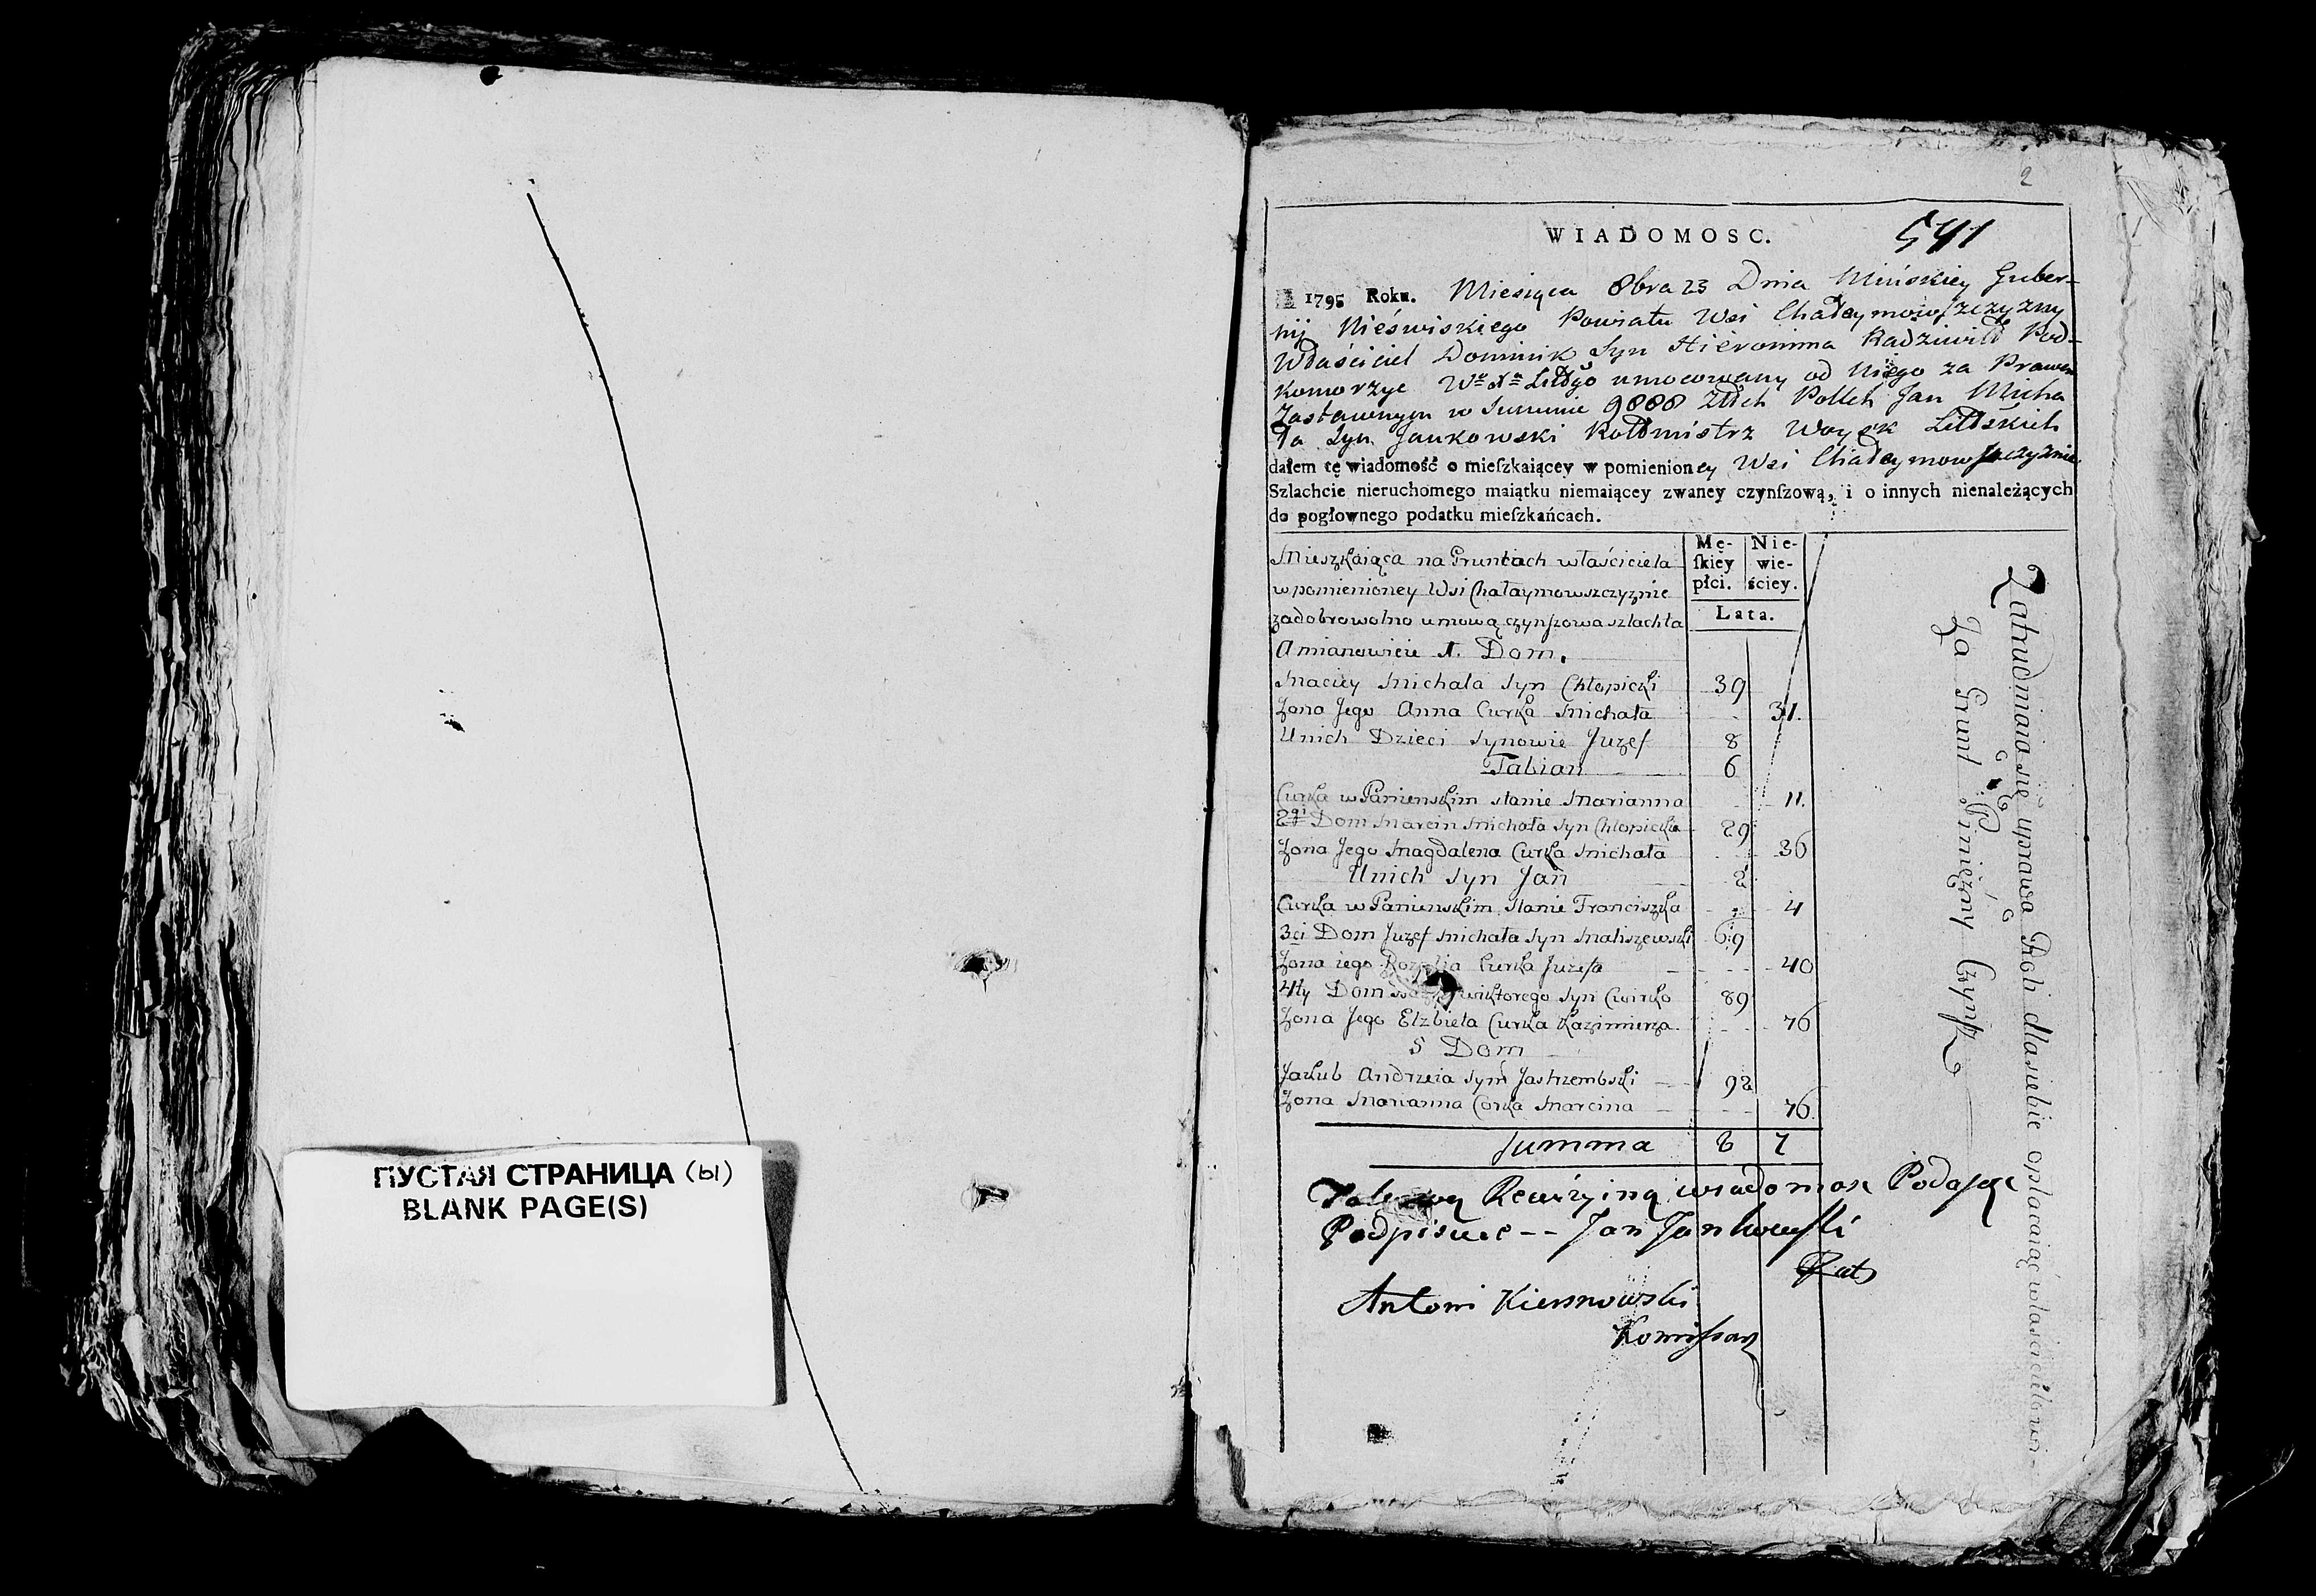 ПУСТАЯ СТРАНИЦА (ы)
BLANK PAGE(S)
2
WIADOMOSC.
541
1795 Roku. Miesiąca 8bra 23 Dnia Mińskiey Guber-
nij Nieświskiego Powiatu Wsi Chałaymowszczyzny
Właściciel Dominik Syn Hieronima Radziwiłł Pod-
komorzyc Wo Xa Littgo umocowany od Niego za Prawem
Zastawnym w Summie 9888 Złłch Pollch Jan Micha
ła Syn Jankowski Rottmistrz Woysk Littskich
dałem tę wiadomość o mieſzkaiącey w pomienioney Wsi Chałaymowszczyznie
Szlachcie nieruchomego maiątku niemaiącey zwaney czynſzową, i o innych nienależących
do pogłownego podatku mieſzkańcach.
Mę-
ſkiey
płci.
Nie-
wie-
ściey.
Lata.
Mieszkaiąca na Gruntach właściciela
w pomienioney Wsi Chałaymowszczyznie
zadobrowolno umową czynszowa szlachta
Amianowicie 1. Dom.
Maciey Michała Syn Chłopicki 39
Zona Jego Anna Curka Michała 31.
Unich Dzieci Synowie Juzef 8
Fabian 6
Curka w Panienskim stanie Marianna 11.
2gi Dom Marcin Michała Syn Chłopicki 29
Zona Jego Magdalena Curka Michała 36
Unich Syn Jan 2
Curka w Panienskim Stanie Franciszka 4
3ci Dom Juzef Michała Syn Maliszewski 69
Zona iego Rozalia Curka Juzefa 40
4ty Dom wiktorego Syn Cwirko 89
Zona Jego Elzbieta Curka Kazimierza 76
5 Dom
Jakub Andrzeia Syn Jastrzembski 92
Zona Marianna Corka Marcina 76.
Summa 8 7
Rewizyiną wiadomosc Podaſąc
Podpisuię -- Jan Jankowſki
Rat
Antoni Kiersnowski
Komiſsarz
Zatrudniaią się uprawą Roli dlasiebie opłacaiąc właścicielowi-
Za Grunt Pinięzny Czynſz